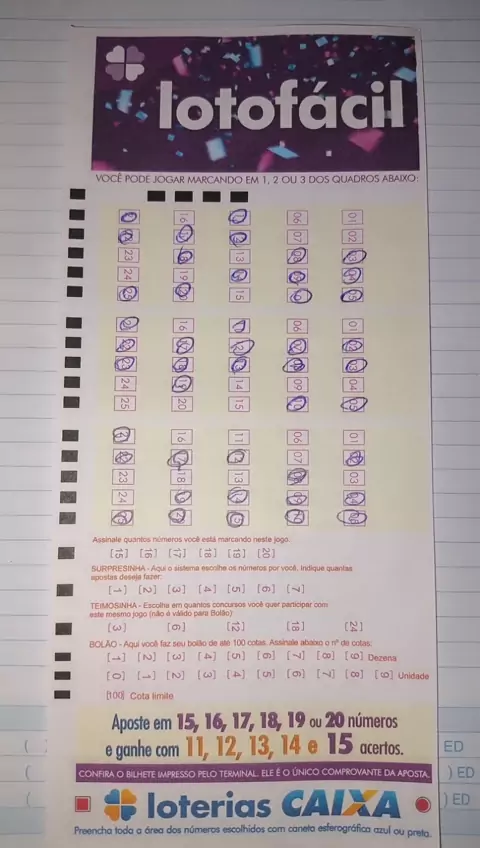 lotofácil
VOCÊ PODE JOGAR MARCANDO EM 1, 2 OU 3 DOS QUADROS ABAIXO:
16 06 01
07 02
23 13
24 19
15
16 06 01
24 14 09 04
25 20 15
16 11 06 01
07
23 18 03
24
Assinale quantos números você está marcando neste jogo.
[15] [16] [17] [18] [19] [20]
SURPRESINHA - Aqui o sistema escolhe os números por você. Indique quantas
apostas deseja fazer:
[1] [2] [3] [4] [5] [6] [7]
TEIMOSINHA - Escolha em quantos concursos você quer participar com
este mesmo jogo (não é válido para Bolão)
[3] [6] [12] [18] [24]
BOLÃO - Aqui você faz seu bolão de até 100 cotas. Assinale abaixo o nº de cotas:
[1] [2] [3] [4] [5] [6] [7] [8] [9] Dezena
[0] [1] [2] [3] [4] [5] [6] [7] [8] [9] Unidade
[100] Cota limite
Aposte em 15, 16, 17, 18, 19 ou 20 números
e ganhe com 11, 12, 13, 14 e 15 acertos.
CONFIRA O BILHETE IMPRESSO PELO TERMINAL. ELE É O ÚNICO COMPROVANTE DA APOSTA.
loterias CAIXA
Preencha toda a área dos números escolhidos com caneta esferográfica azul ou preta.
( ED
( ) ED
( ) ED